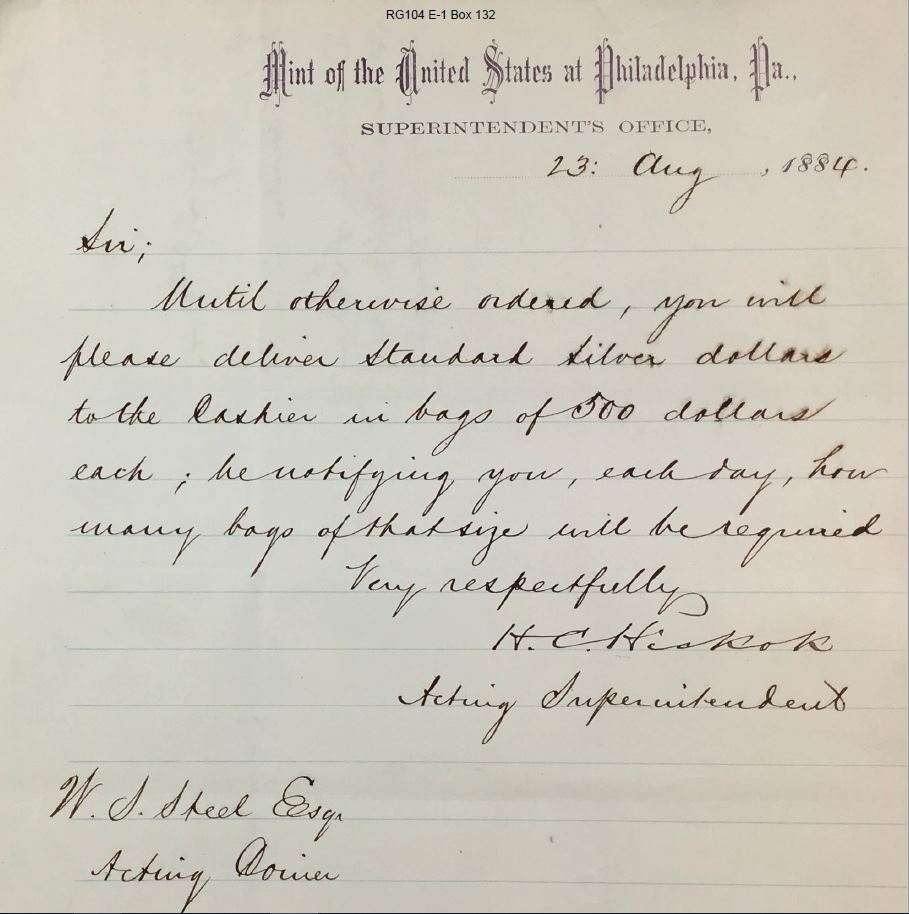 RG104 E-1 Box 132
Mint of the United States at Philadelphia, Pa.,
SUPERINTENDENT'S OFFICE,
23: Aug , 1884.
Sir;
Until otherwise ordered, you will
please deliver standard silver dollars
to the Cashier in bags of 500 dollars
each; he notifying you, each day, how
many bags of that size will be required
Very respectfully
H. C. Hickok
Acting Superintendent
W. S. Steel Esqr
Acting Coiner